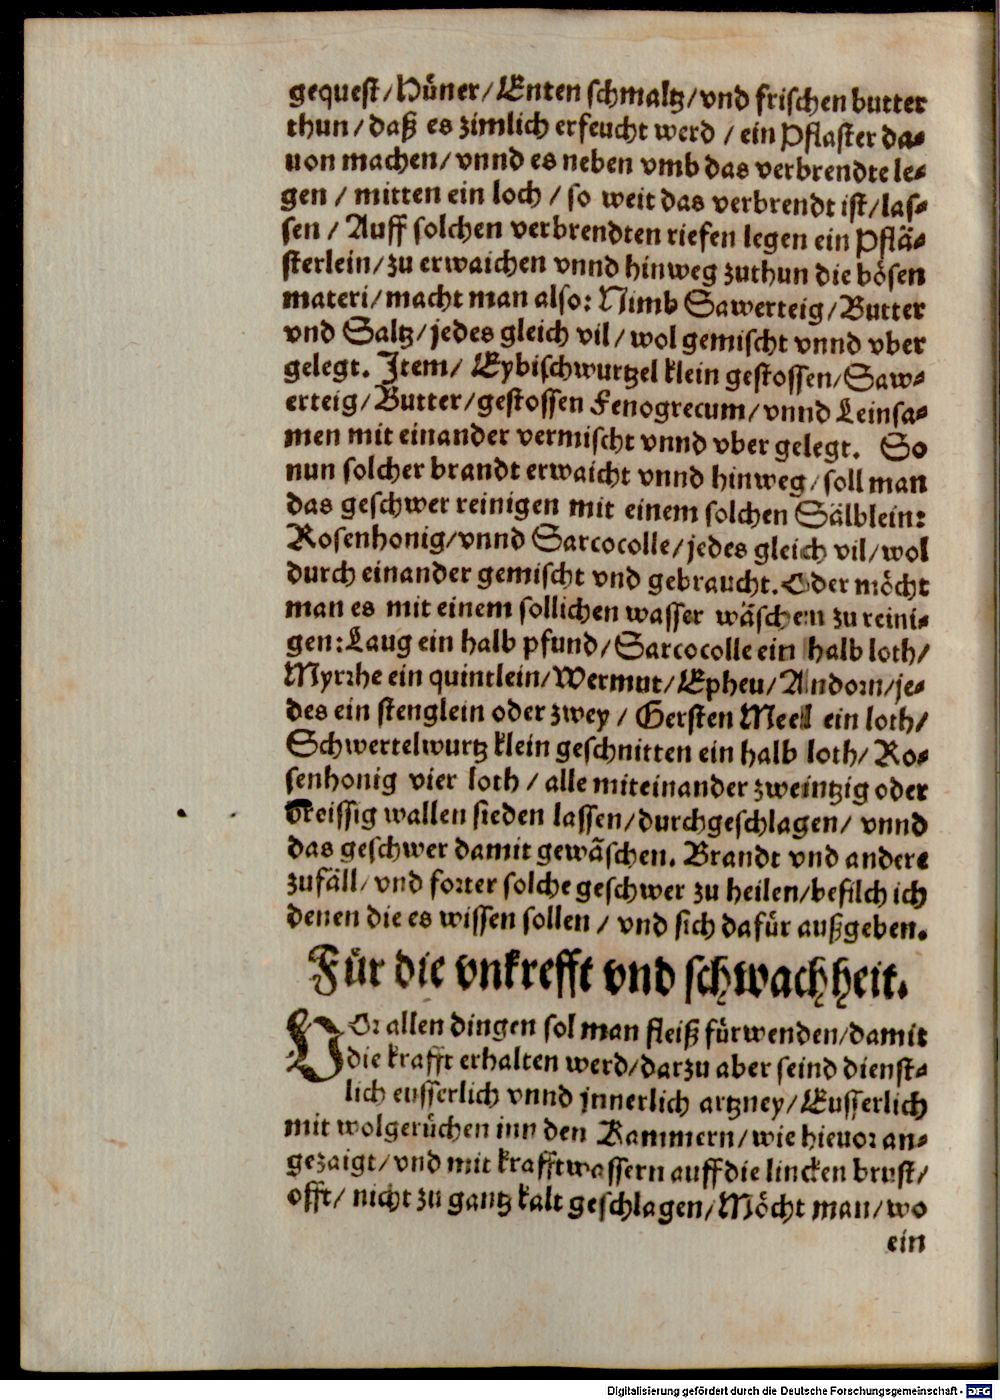 gequest/Hüner/Enten schmaltz/vnd frischen butter
thun/daß es zimlich erfeucht werd / ein Pflaster da-
uon machen/vnnd es neben vmb das verbrendte le-
gen / mitten ein loch / so weit das verbrendt ist/las-
sen / Auff solchen verbrendten riefen legen ein Pflä-
sterlein/zu erwaichen vnnd hinweg zuthun die bösen
materi/macht man also: Nimb Sawerteig/Butter
vnd Saltz/jedes gleich vil/wol gemischt vnnd vber
gelegt. Item/ Eybischwurtzel klein gestossen/Saw-
erteig/Butter/gestossen Fenogrecum/vnnd Leinsa-
men mit einander vermischt vnnd vber gelegt. So
nun solcher brandt erwaicht vnnd hinweg/soll man
das geschwer reinigen mit einem solchen Sälblein:
Rosenhonig/vnnd Sarcocolle/jedes gleich vil/wol
durch einander gemischt vnd gebraucht. Oder möcht
man es mit einem sollichen wasser wäschen zu reini-
gen: Laug ein halb pfund/Sarcocolle ein halb loth/
Myrrhe ein quintlein/Wermut/Epheu/Andorn/je-
des ein stenglein oder zwey / Gersten Meel ein loth/
Schwertelwurtz klein geschnitten ein halb loth/ Ro-
senhonig vier loth / alle miteinander zweintzig oder
dreissig wallen sieden lassen/durchgeschlagen/ vnnd
das geschwer damit gewäschen. Brandt vnd andere
zufäll/vnd forter solche geschwer zu heilen/befilch ich
denen die es wissen sollen / vnd sich dafür außgeben.
Für die vnkrefft vnd schwachheit.
VOr allen dingen sol man fleiß fürwenden/damit
die krafft erhalten werd/darzu aber seind dienst-
lich eusserlich vnnd jnnerlich artzney/Eusserlich
mit wolgerüchen inn den Kammern/wie hieuor an-
gezaigt/vnd mit krafftwassern auff die lincken brust/
offt/ nicht zu gantz kalt geschlagen/Möcht man/wo
ein
Digitalisierung gefördert durch die Deutsche Forschungsgemeinschaft - DFG